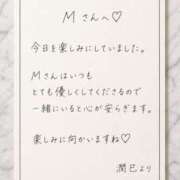 Mさんへ♡
今日を楽しみにしていました。
Mさんはいつも
とても優しくしてくださるので
一緒にいると心が安らぎます。
楽しみに向かいますね♡
潤巳より